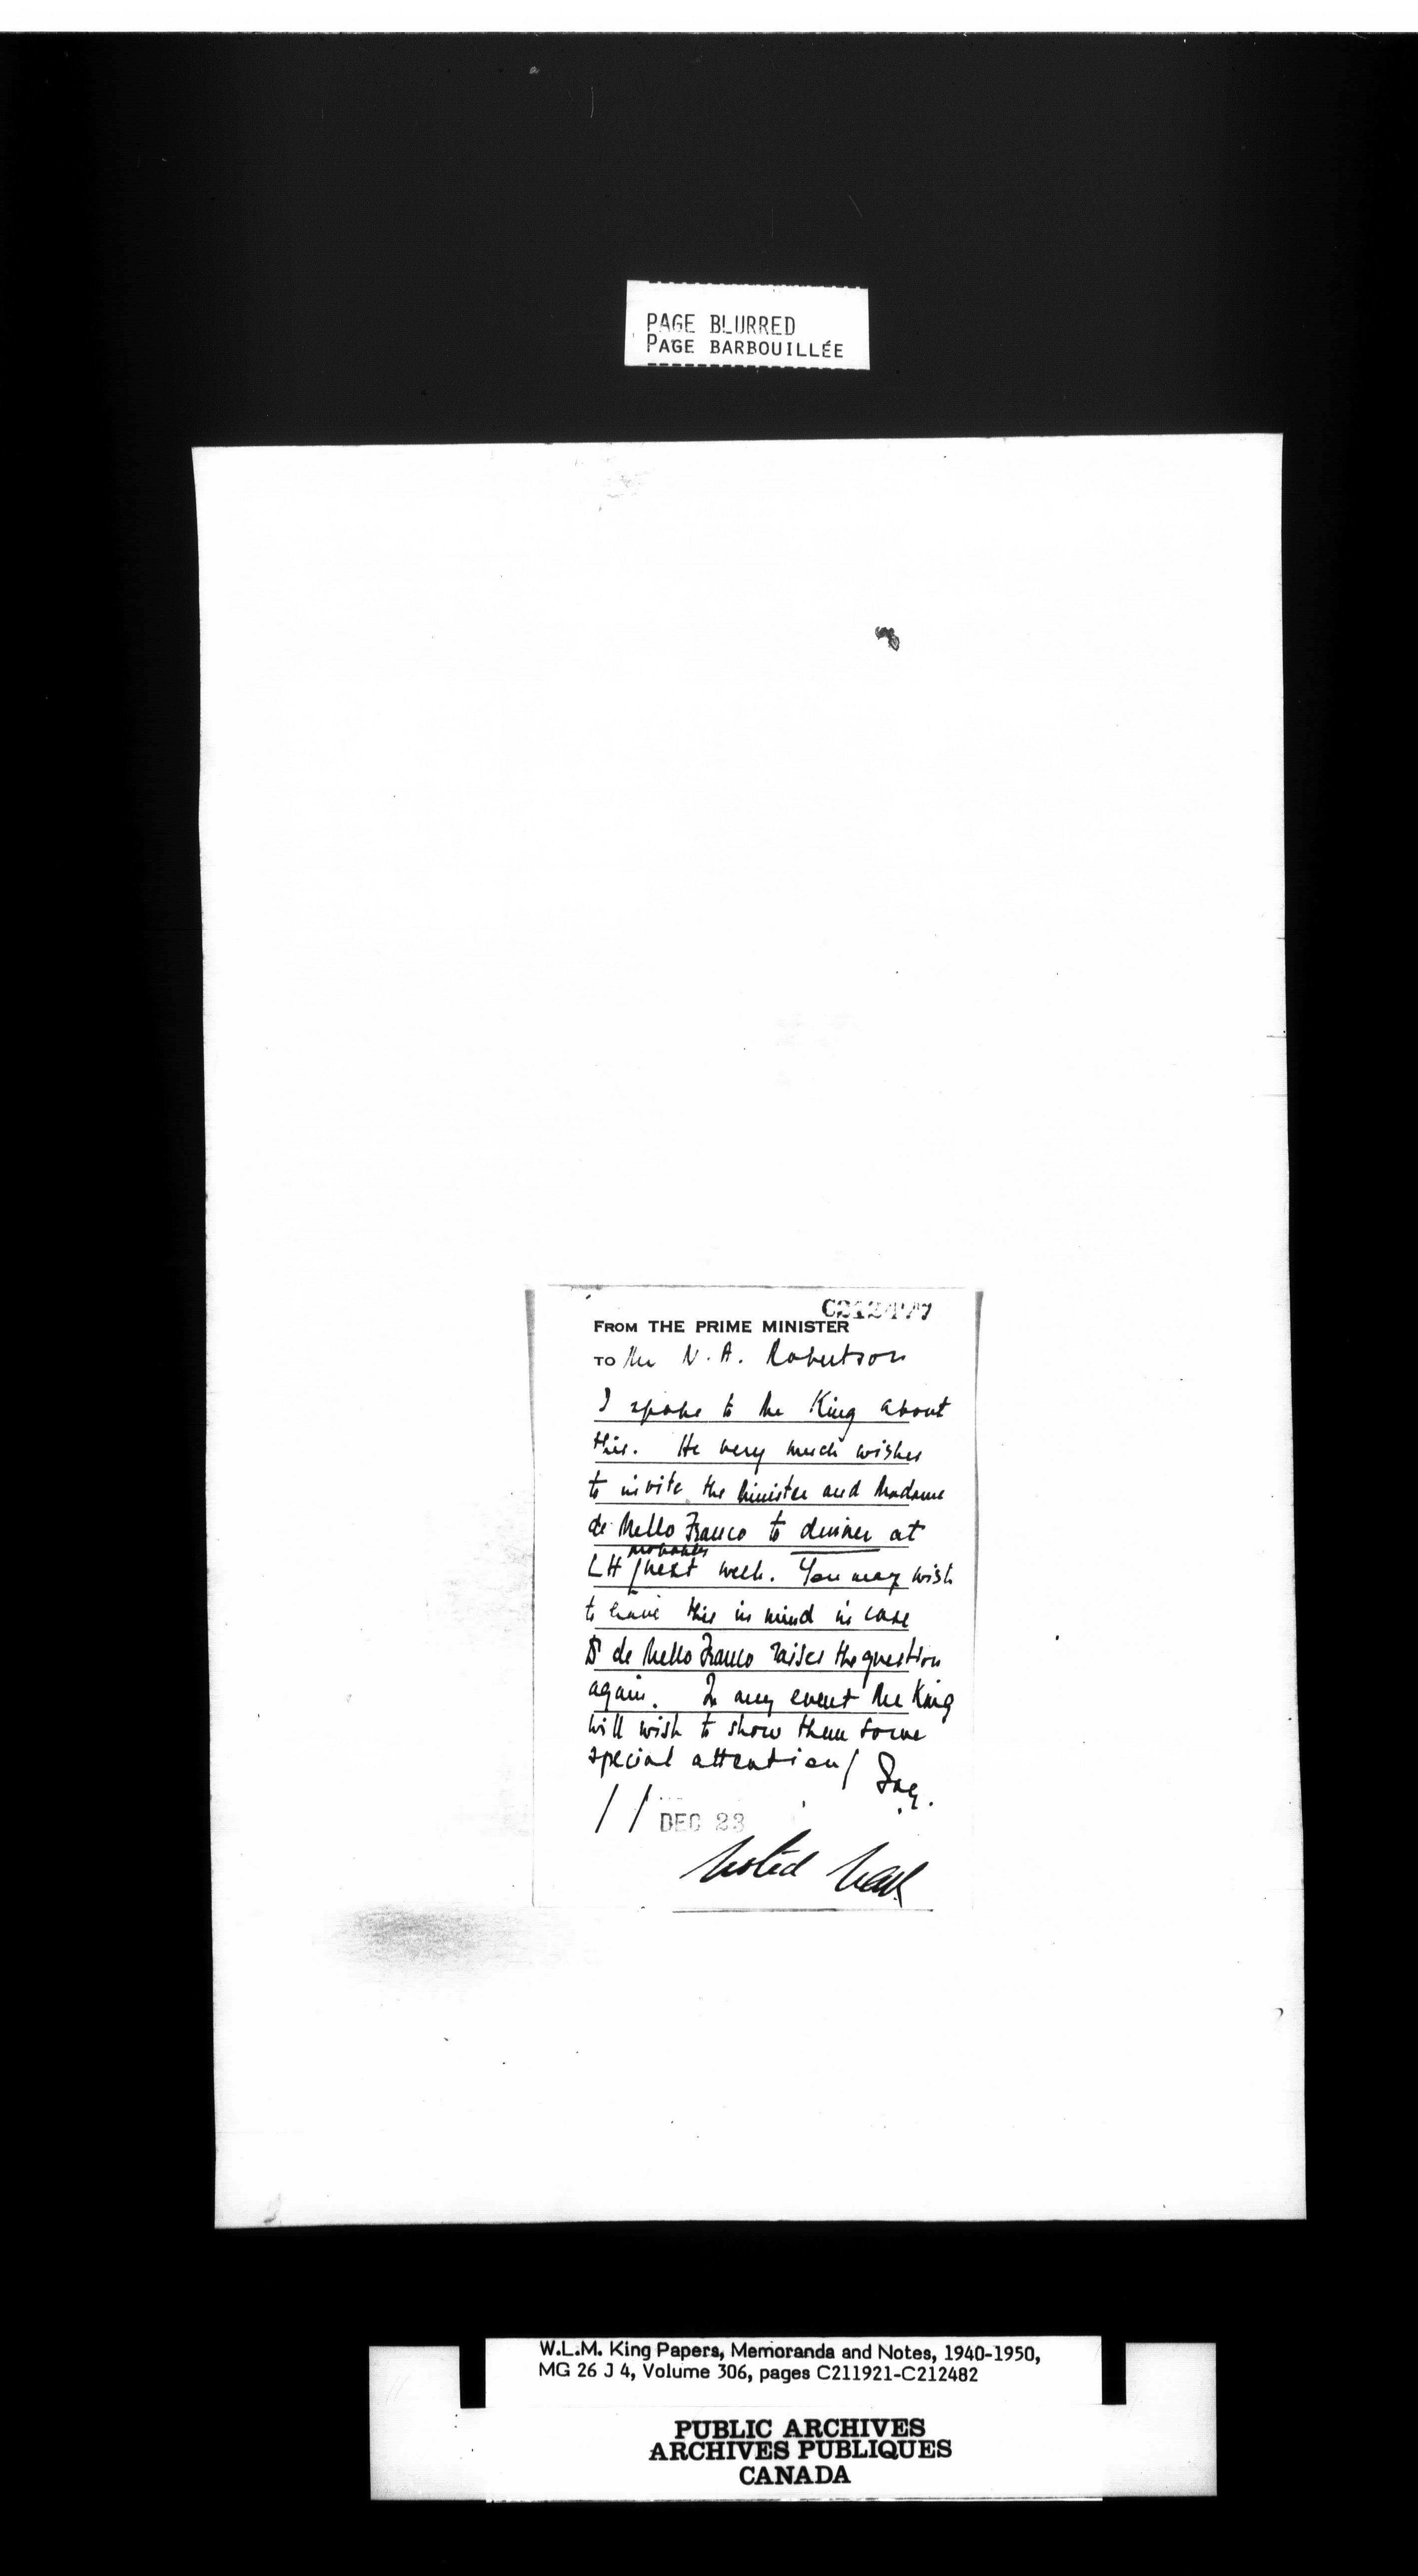 PAGE BLURRED
PAGE BARBOUILLÉE
C212477
FROM THE PRIME MINISTER
TO Mr N. A. Robertson
I spoke to the King about
this. He very much wishes
to invite the Minister and Madame
de Mello Franco to dinner at
probably
LH / next week. You may wish
to have this in mind in case
Dr de Mello Franco raises the question
again. In any event the King
will wish to show them some
special attention /
/ / DEC 23
Noted NAR
W.L.M. King Papers, Memoranda and Notes, 1940-1950,
MG 26 J 4, Volume 306, pages C211921-C212482
PUBLIC ARCHIVES
ARCHIVES PUBLIQUES
CANADA